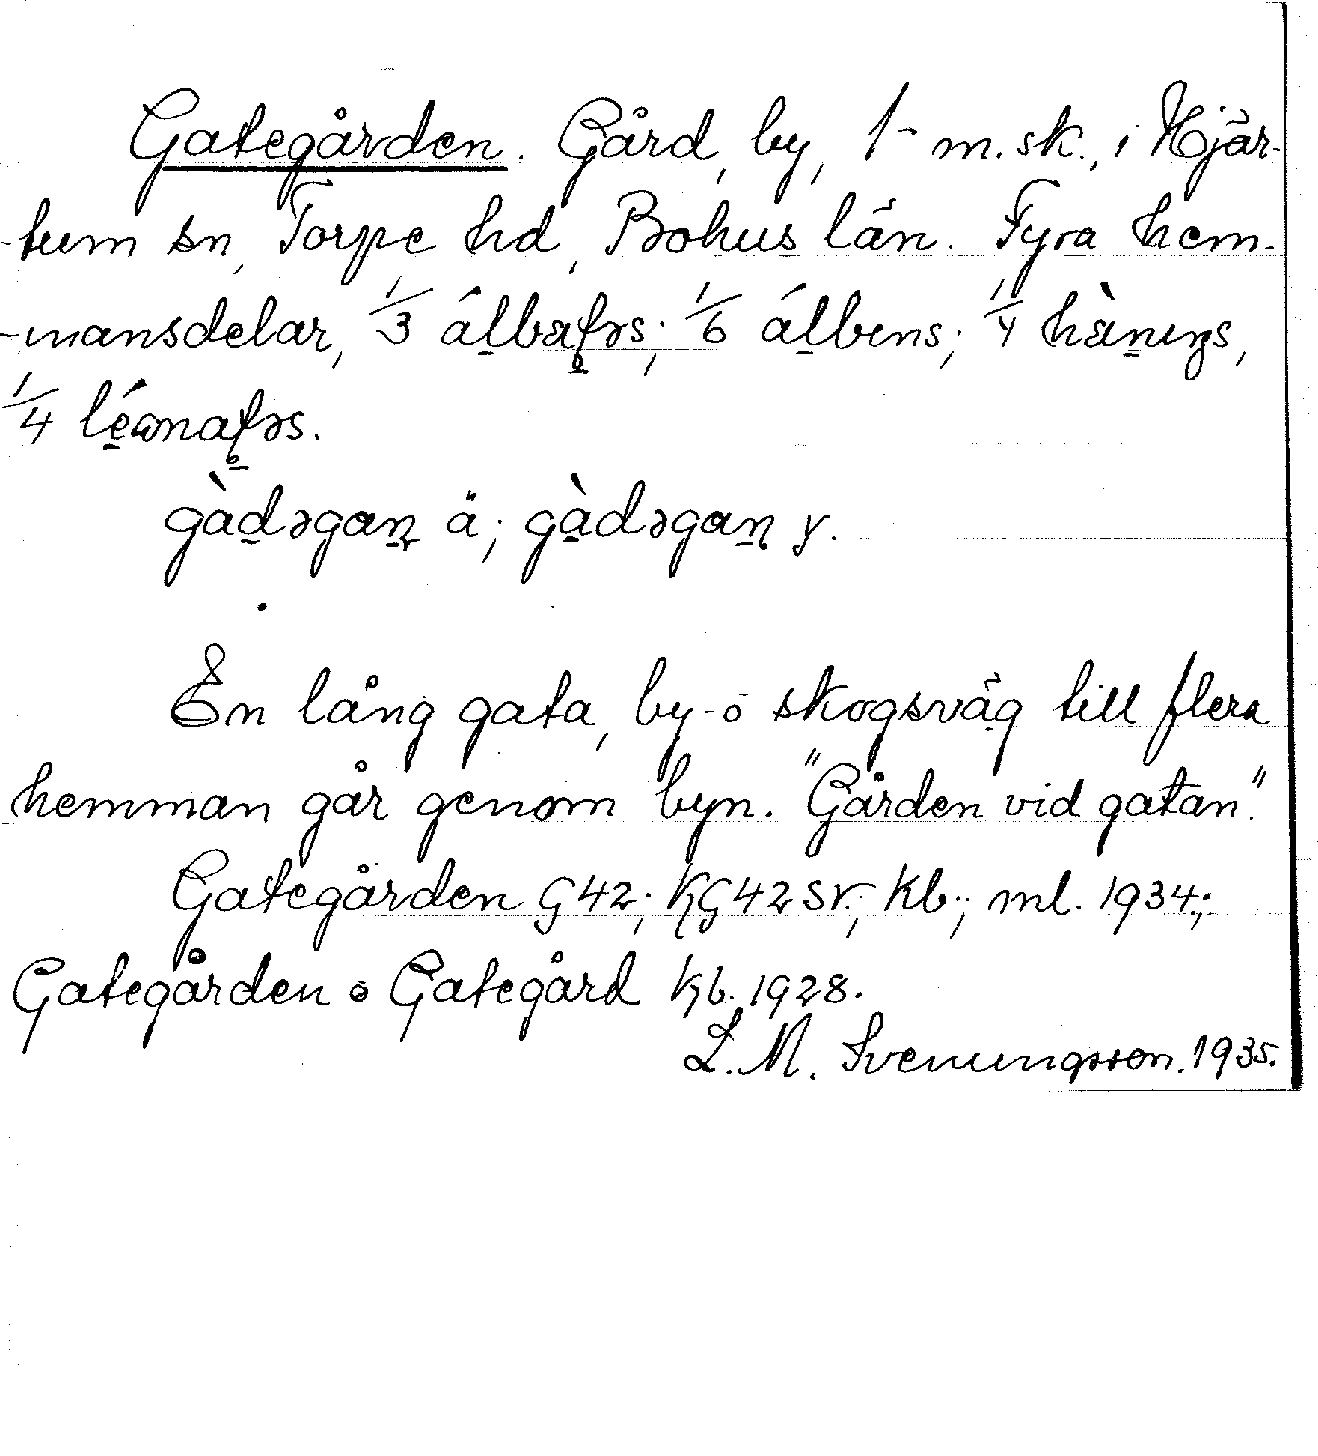 Gategården. Gård, by, 1- m.sk., i Hjär-
tum sn, Torpe hd, Bohus län. Fyra hem-
mansdelar, 1/3 álbafəs; 1/6 álbens; 1/4 hànıŋs,
1/4
gàdəgaɳ ä; gàdəgaɳ y.
En lång gata, by- o skogsväg till flera
hemman går genom byn. "Gården vid gatan".
Gategården G42; KG42 sv.; Kb.; ml. 1934.;
Gategården o Gategård Kb. 1928.
L. M. Svenungsson. 1935.